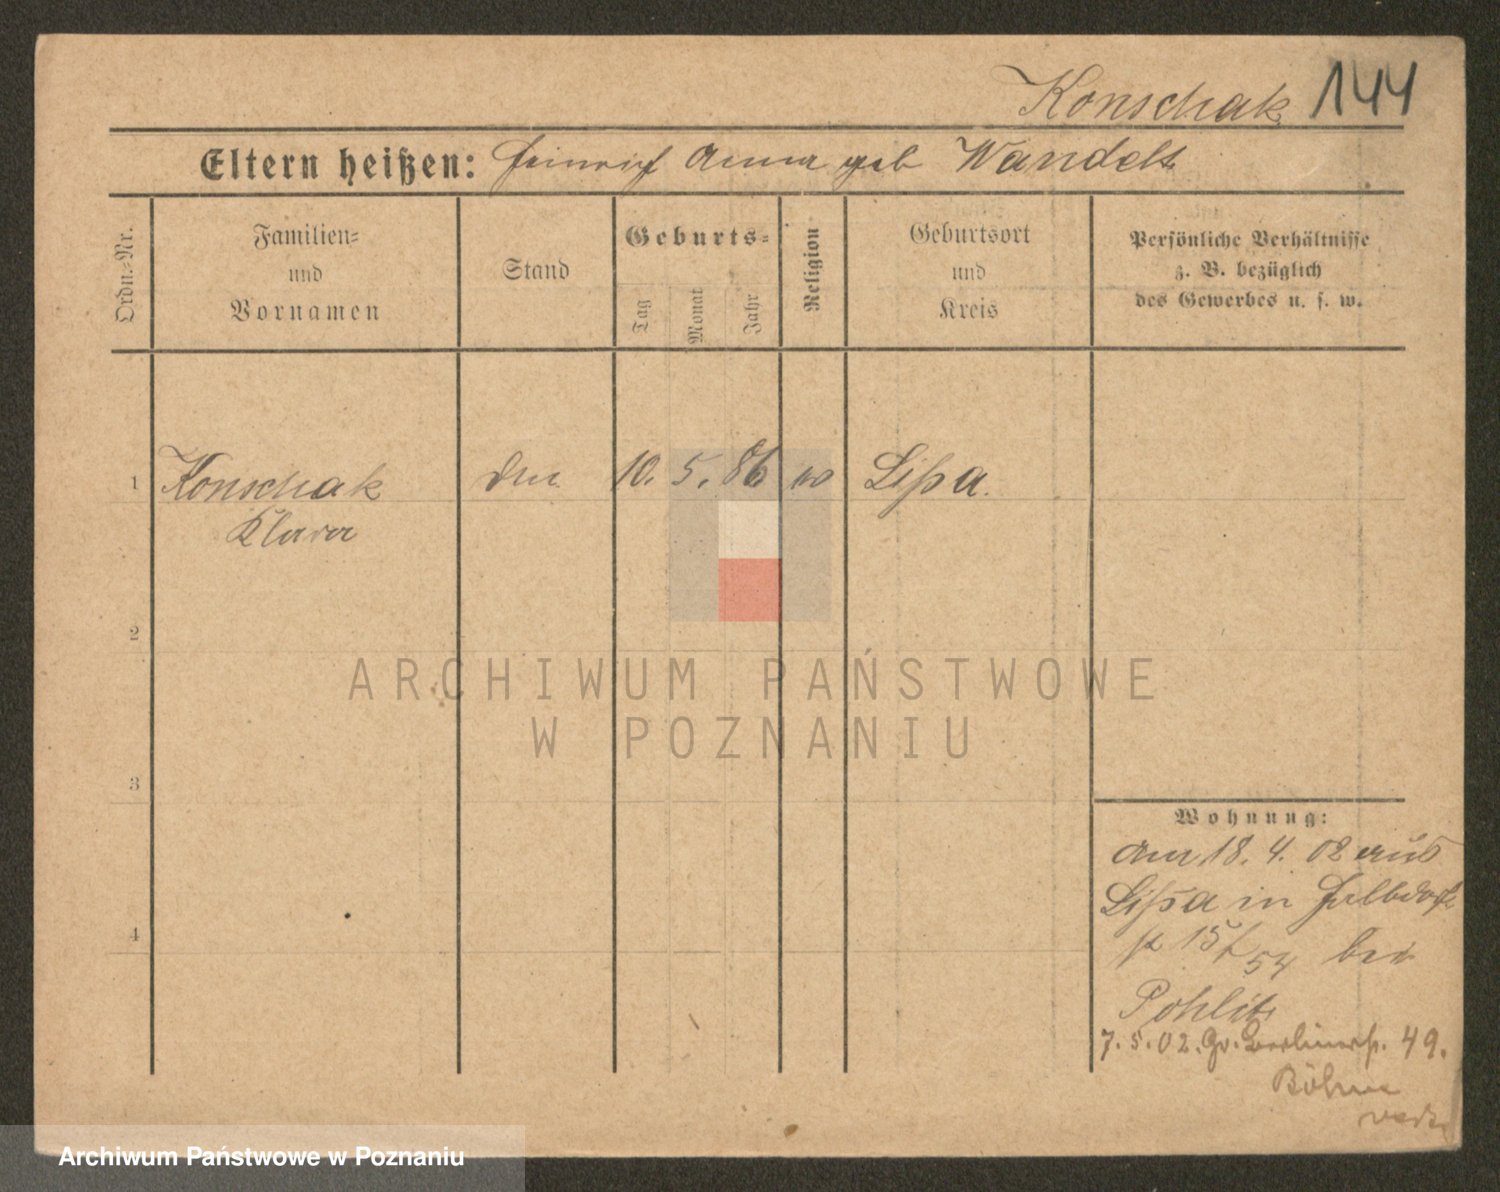 Konschak 144
Eltern heißen: Heinrich Anna geb Wandelt
Ordn.-Nr.
Familien-
und
Vornamen
Stand
Geburts-
Tag
Monat
Jahr
Religion
Geburtsort
und
Kreis
Persönliche Verhältnisse
z. B. bezüglich
des Gewerbes u. s. w.
1 Konschak 10. 5. 86 Lissa.
Klara
2
3
4
ARCHIWUM PAŃSTWOWE
W POZNANIU
Wohnung:
am 18. 4. 02 aus
Lissa in Halbdorf
15 54 bei
Pohlitz
7. 5. 02. Gr. Berlinerstr. 49.
Böhme
Archiwum Państwowe w Poznaniu